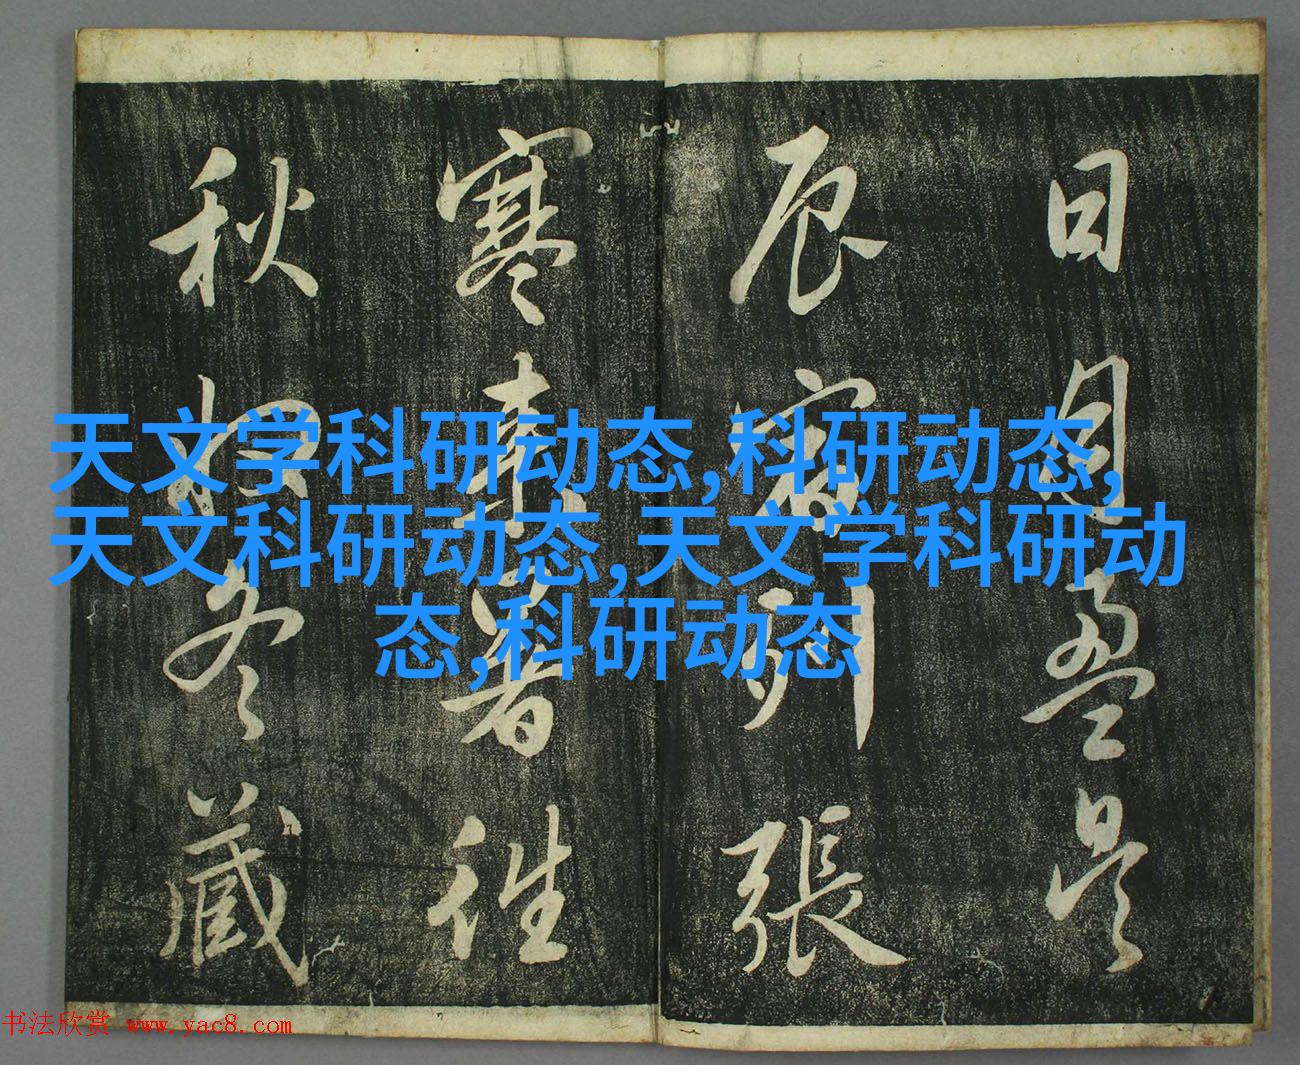 日月盈昃
辰宿列張
寒來暑往
秋收冬藏
天文学科研动态,科研动态,
天文科研动态,天文学科研动
态,科研动态
书法欣赏 www.yac8.com